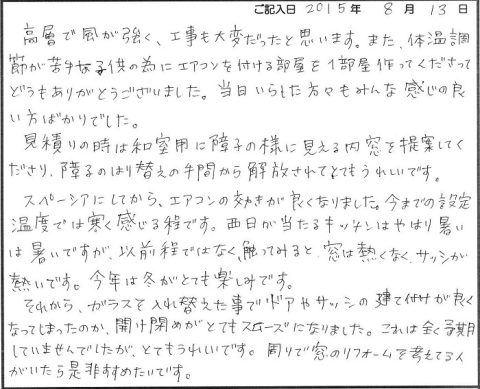 ご記入日 2015年 8月 13日
高層で風が強く、工事も大変だったと思います。また、体温調
節が苦手な子供の為にエアコンを付ける部屋を1部屋作ってくださって
どうもありがとうございました。当日いらした方々もみんな感じの良
い方ばかりでした。
見積りの時は和室用に障子の様に見える内窓を提案してく
ださり、障子のはり替えの手間から解放されてとてもうれしいです。
スペーシアにしてから、エアコンの効きが良くなりました。今までの設定
温度では寒く感じる程です。西日が当たるキッチンはやはり暑い
は暑いですが、以前程ではなく、触ってみると、窓は熱くなく、サッシが
熱いです。今年は冬がとても楽しみです。
それから、ガラスを入れ替えた事でドアやサッシの建て付けが良く
なってしまったのか、開け閉めがとてもスムーズになりました。これは全く予期
していませんでしたが、とてもうれしいです。周りで窓のリフォームを考えてる人
がいたら是非すすめたいです。